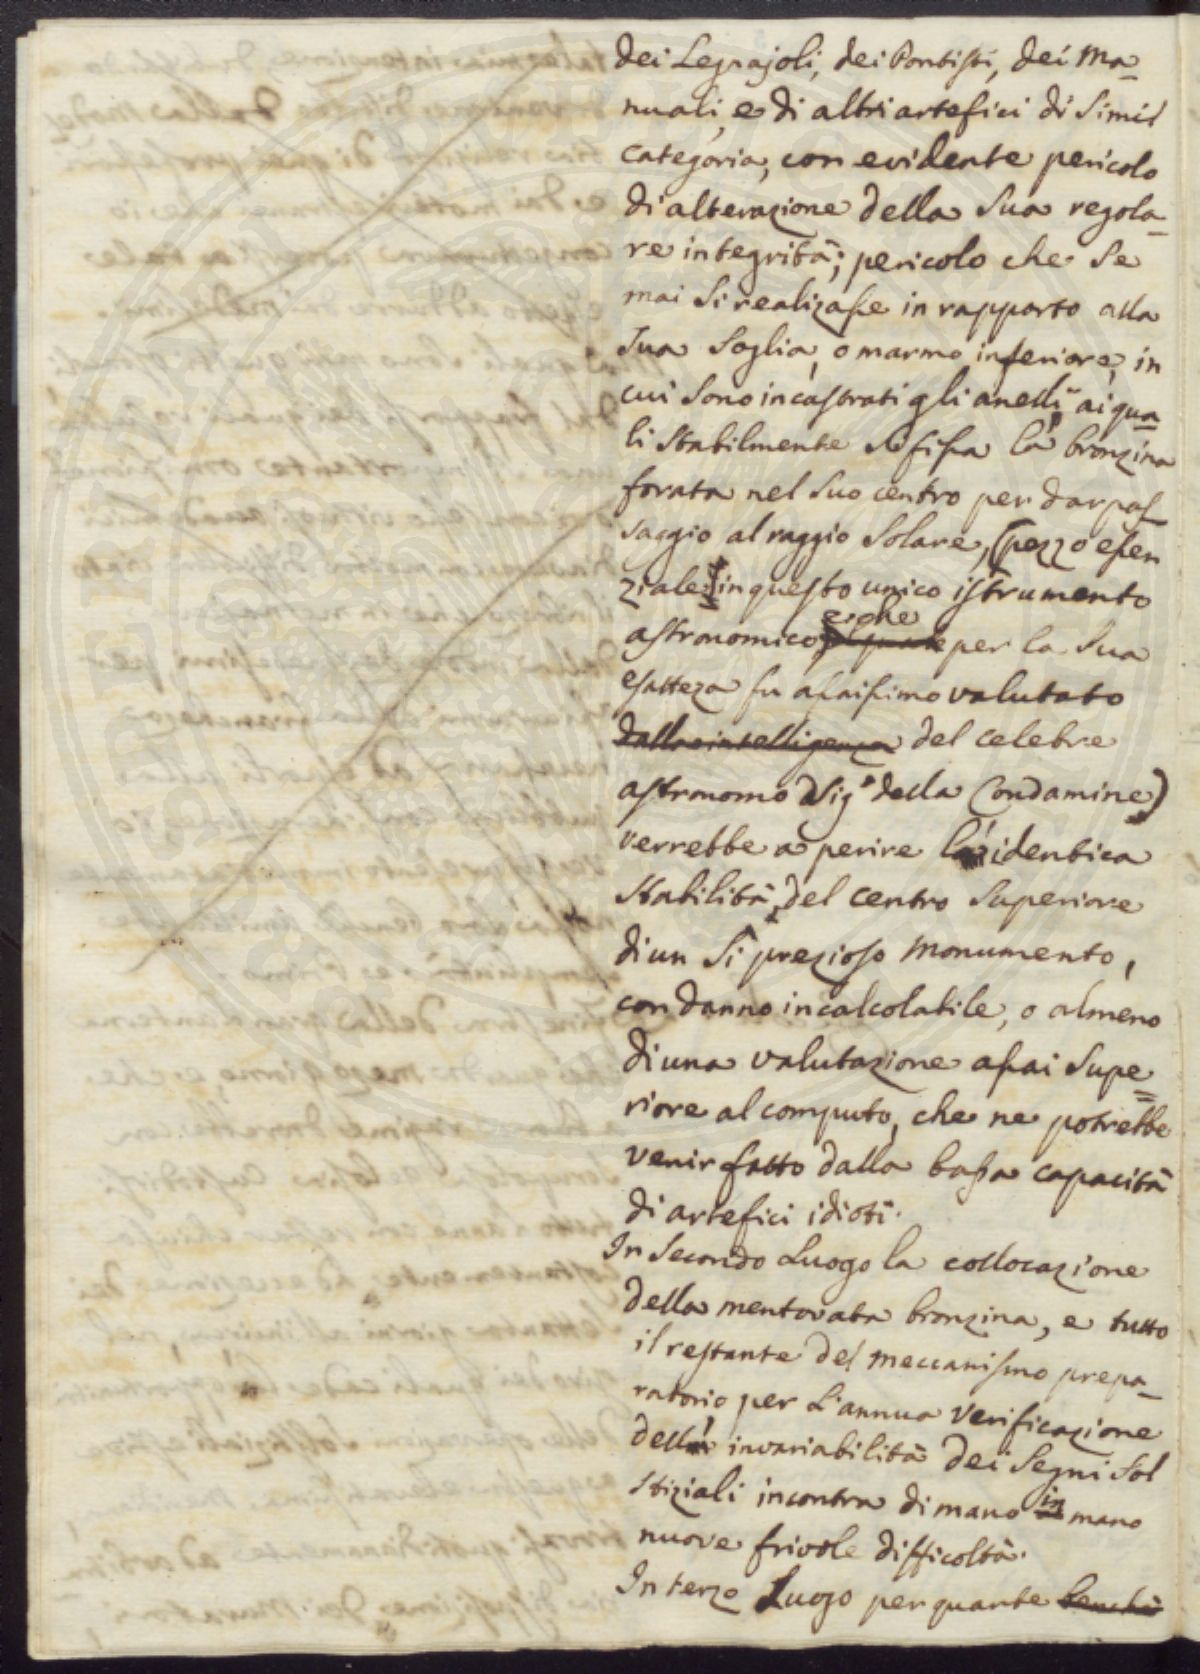 dei Legnajoli, dei Pontisti, dei Ma-
nuali, e di altri artefici di simil
categoria, con evidente pericolo
di alterazione della sua regola-
re integrità; pericolo che se
mai si realizasse in rapporto alla
sua soglia, o marmo inferiore, in
cui sono incastrati gli anelli, ai qua=
li stabilmente si fissa la bronzina
forata nel suo centro per dar pas-
saggio al raggio solare, (pezzo essen
ziale in questo unico istrumento
astronomico, e che per la sua
esatteza fu assaissimo valutato
dalla intelligenza del celebre
astronomo Sig.r della Condamine)
verrebbe a perire l'identica
stabilità del centro superiore
di un sì prezioso monumento,
con danno incalcolabile, o almeno
di una valutazione assai supe=
riore al computo, che ne potrebbe
venir fatto dalla bassa capacità
di artefici idioti.
In secondo Luogo la collocazione
della mentovata bronzina, e tutto
il restante del meccanismo prepa-
ratorio per l'annua verificazione
dell' invariabilità dei segni sol
stiziali incontra di mano in mano
nuove frivole difficoltà.
In terzo Luogo per quante benchè